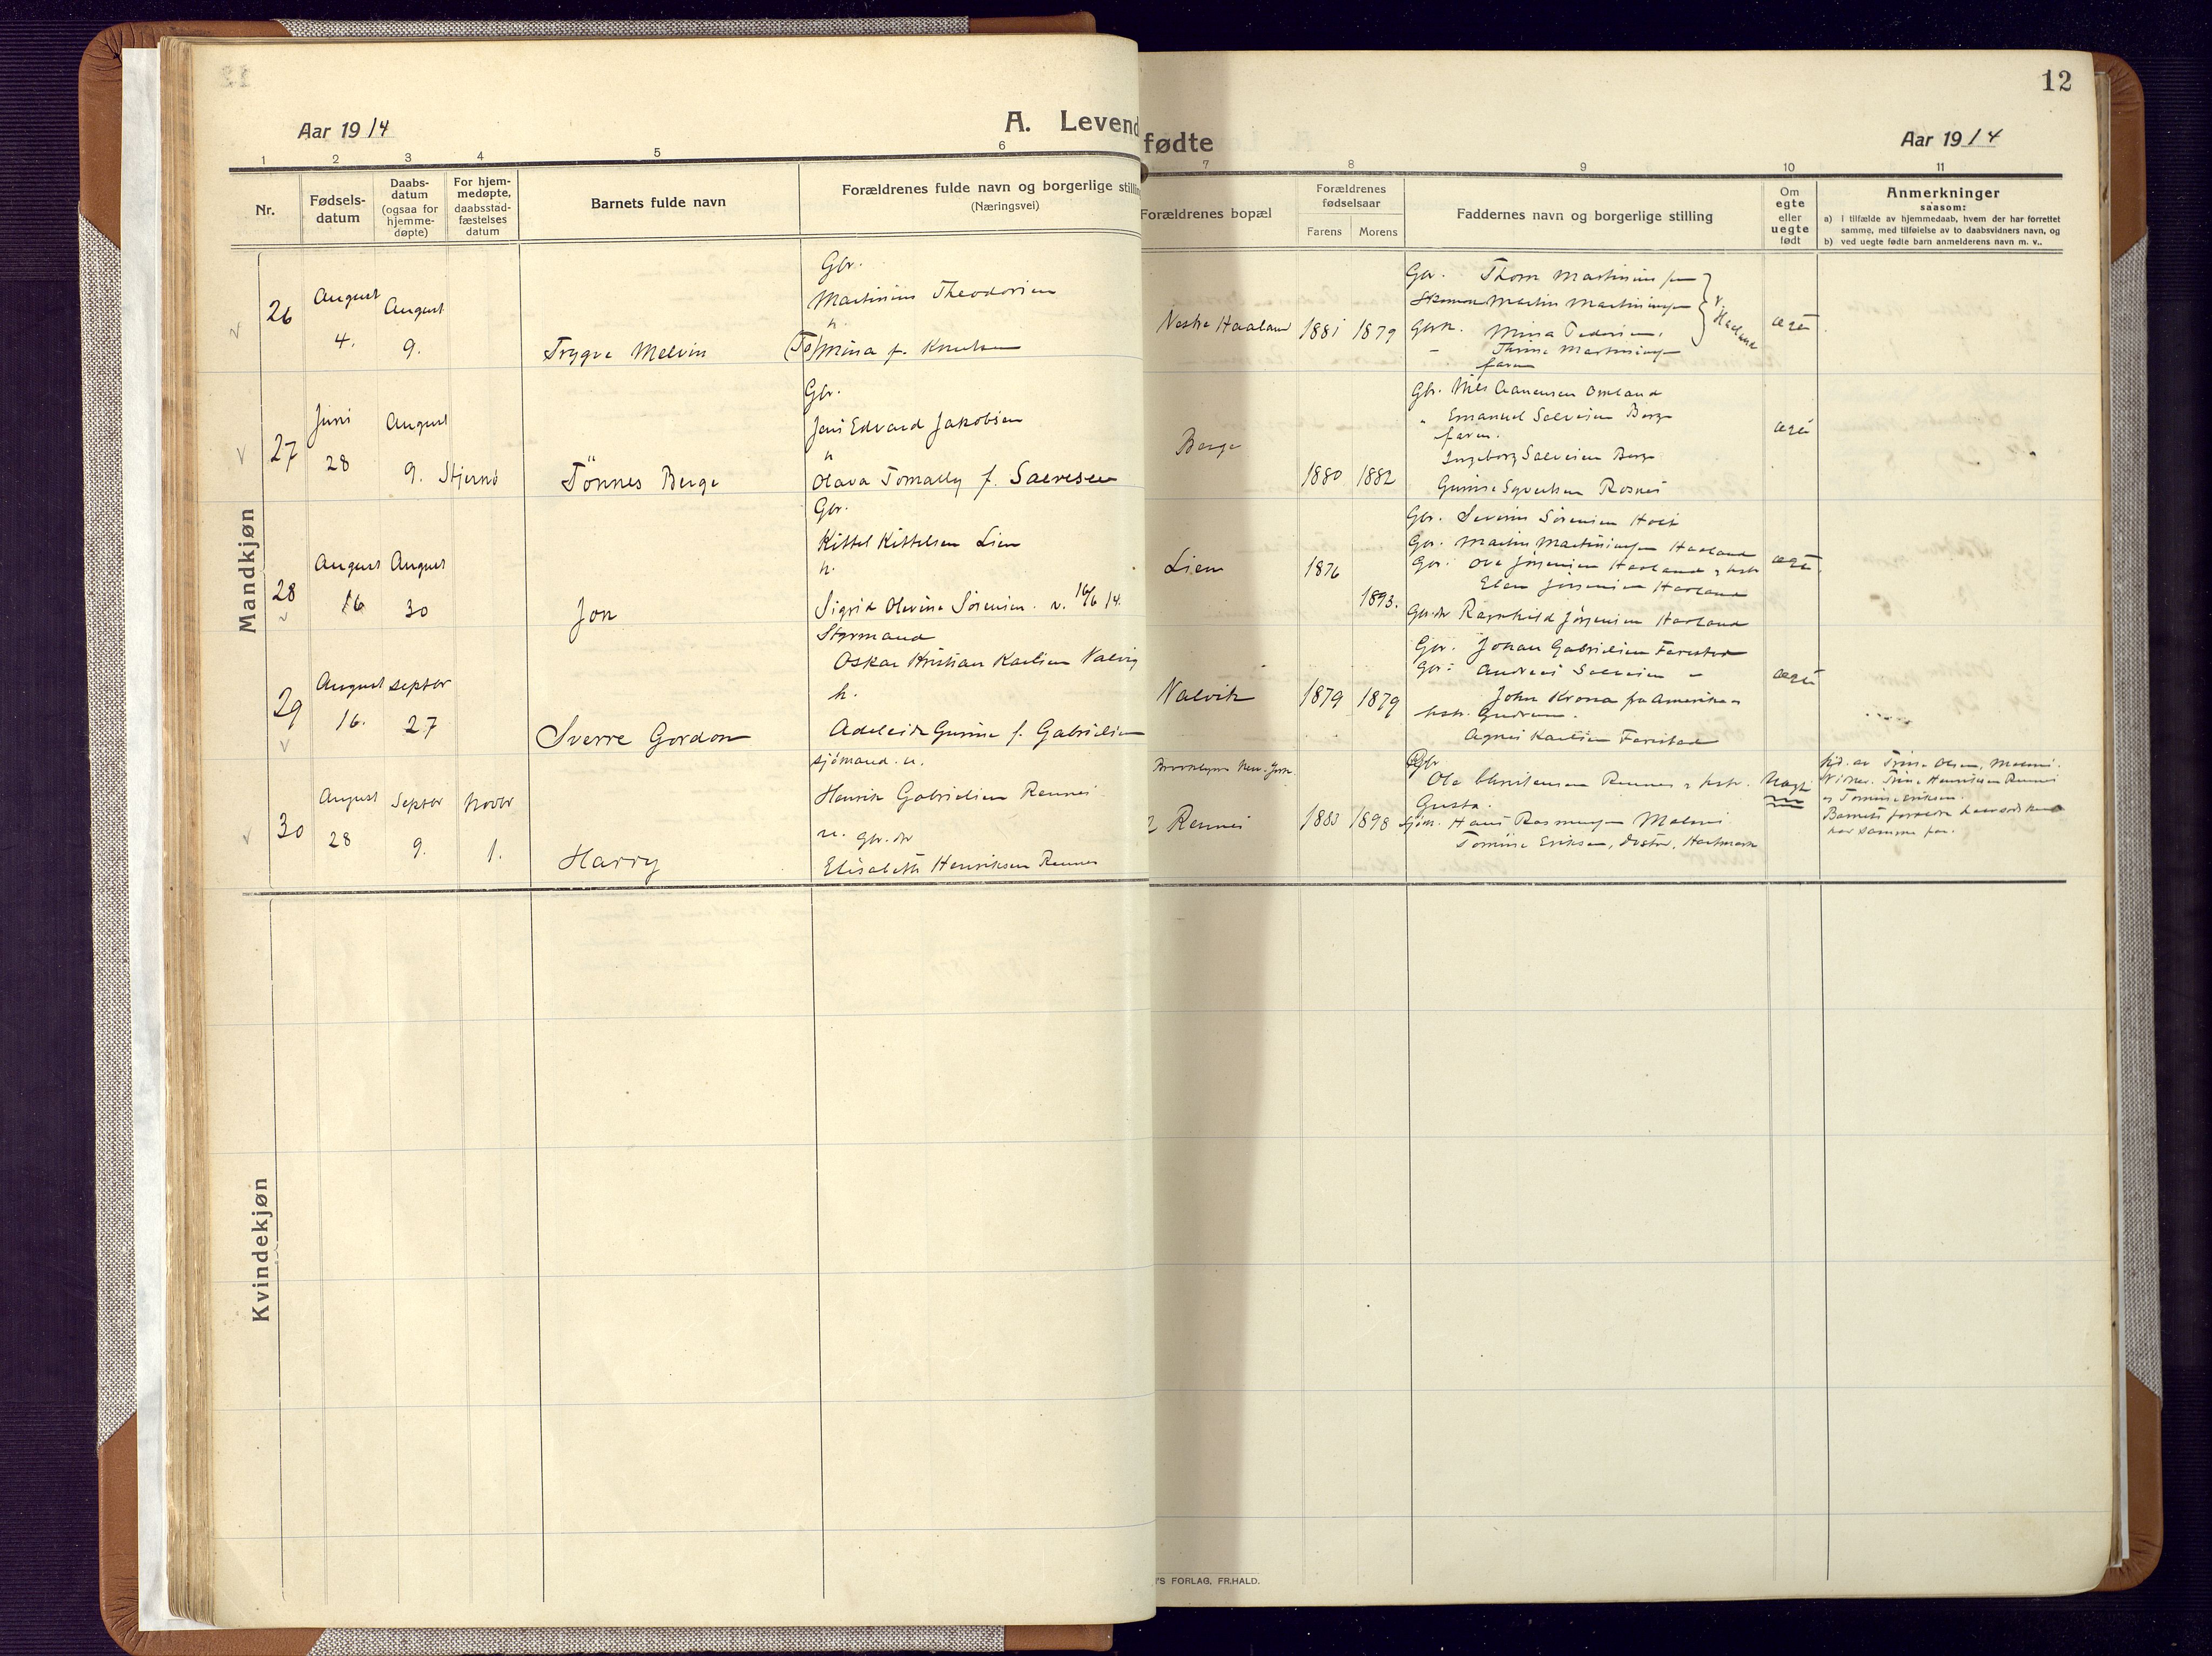 12
Aar 1914
A. Levend
fødte
Aar 1914
1 2 3 4 5 6 7 8 9 10 11
Nr.
Fødsels-
datum
Daabs-
datum
(ogsaa for
hjemme-
døpte)
For hjem-
medøpte,
daabsstad-
fæstelses
datum
Barnets fulde navn
Forældrenes fulde navn og borgerlige stillin
(Næringsvei)
Forældrenes bopæl
Forældrenes
fødselsaar
Farens Morens
Faddernes navn og borgerlige stilling
Om
egte
eller
uegte
født
Anmerkninger
saasom:
a) i tilfælde av hjemmedaab, hvem der har forrettet
samme, med tilføielse av to daabsvidners navn, og
b) ved uegte fødte barn anmelderens navn m. v..
Mandkjøn
26
August
4.
August
9.
Trygve Melvin
Gbr.
Martinius Theodorsen
h.
Mina f. Knudsen
Vestre Haaland
1881 1879
Gbr. Thom Martinius
Martin Martiniussen
Mina Pedersen
Thrine Martiniussen
faren
V. Haaland
ægte
27
Juni
28
August
9.
Stjernø
Tönnes Berge
Gbr.
Jens Edvard Jakobsen
h
Olava Tomally f. Salvesen
Berge
1880 1882
Gbr. Nils Aanensen Omland
" Emanuel Salvesen Berge
faren.
Ingeborg Salvesen Berge
Gunine Syvertsen Rosnes
ægte
28
August
16
August
30
Jon
Gbr.
Kittel Kittelsen Lien
h.
Sigrid Olevine Sörensen. v. 16/6 14.
Lien
1876
1893.
Gbr. Severin Sörensen
Gbr. Martin Martiniussen Haaland
Gbr. Ove Jörgensen Haaland
Elen Jörgensen Haaland
Gbr.dtr Ragnhild Jörgensen Haaland
ægte
29
August
16.
Septbr
27
Sverre Gordon
Styrmand
Oskar Kristian Karlsen Valvig
h.
Adeleide Gurine f. Gabrielsen
Valvik
1879 1879
Gbr. Johan Gabrielsen Farestad
Gbr. Andreas Salvesen "
John Krona fra Amerika
hstr. Gudrun.
Agnes Karlsen Farestad
ægte
30
August
28
Septbr
9.
Novbr
1.
Harry
sjömand. u.
Henrik Gabrielsen Rennes
u. gbr. dtr
Elisabeth Henriksen Rennes
Brooklyn New-York.
Rennes
1883 1898
Gbr
Ole Christensen Rennes
Gusta.
Sjöm. Hans Rasmussen
Tomine Eriksen, Hartmark
Uægte
hjd. av Trine Olsen,
Vidner. Trine Henriksen Rennes
og Tomine Eriksen.
Barnets forældre
har samme far.
Kvindekjøn
'S FORLAG, FR.HALD.